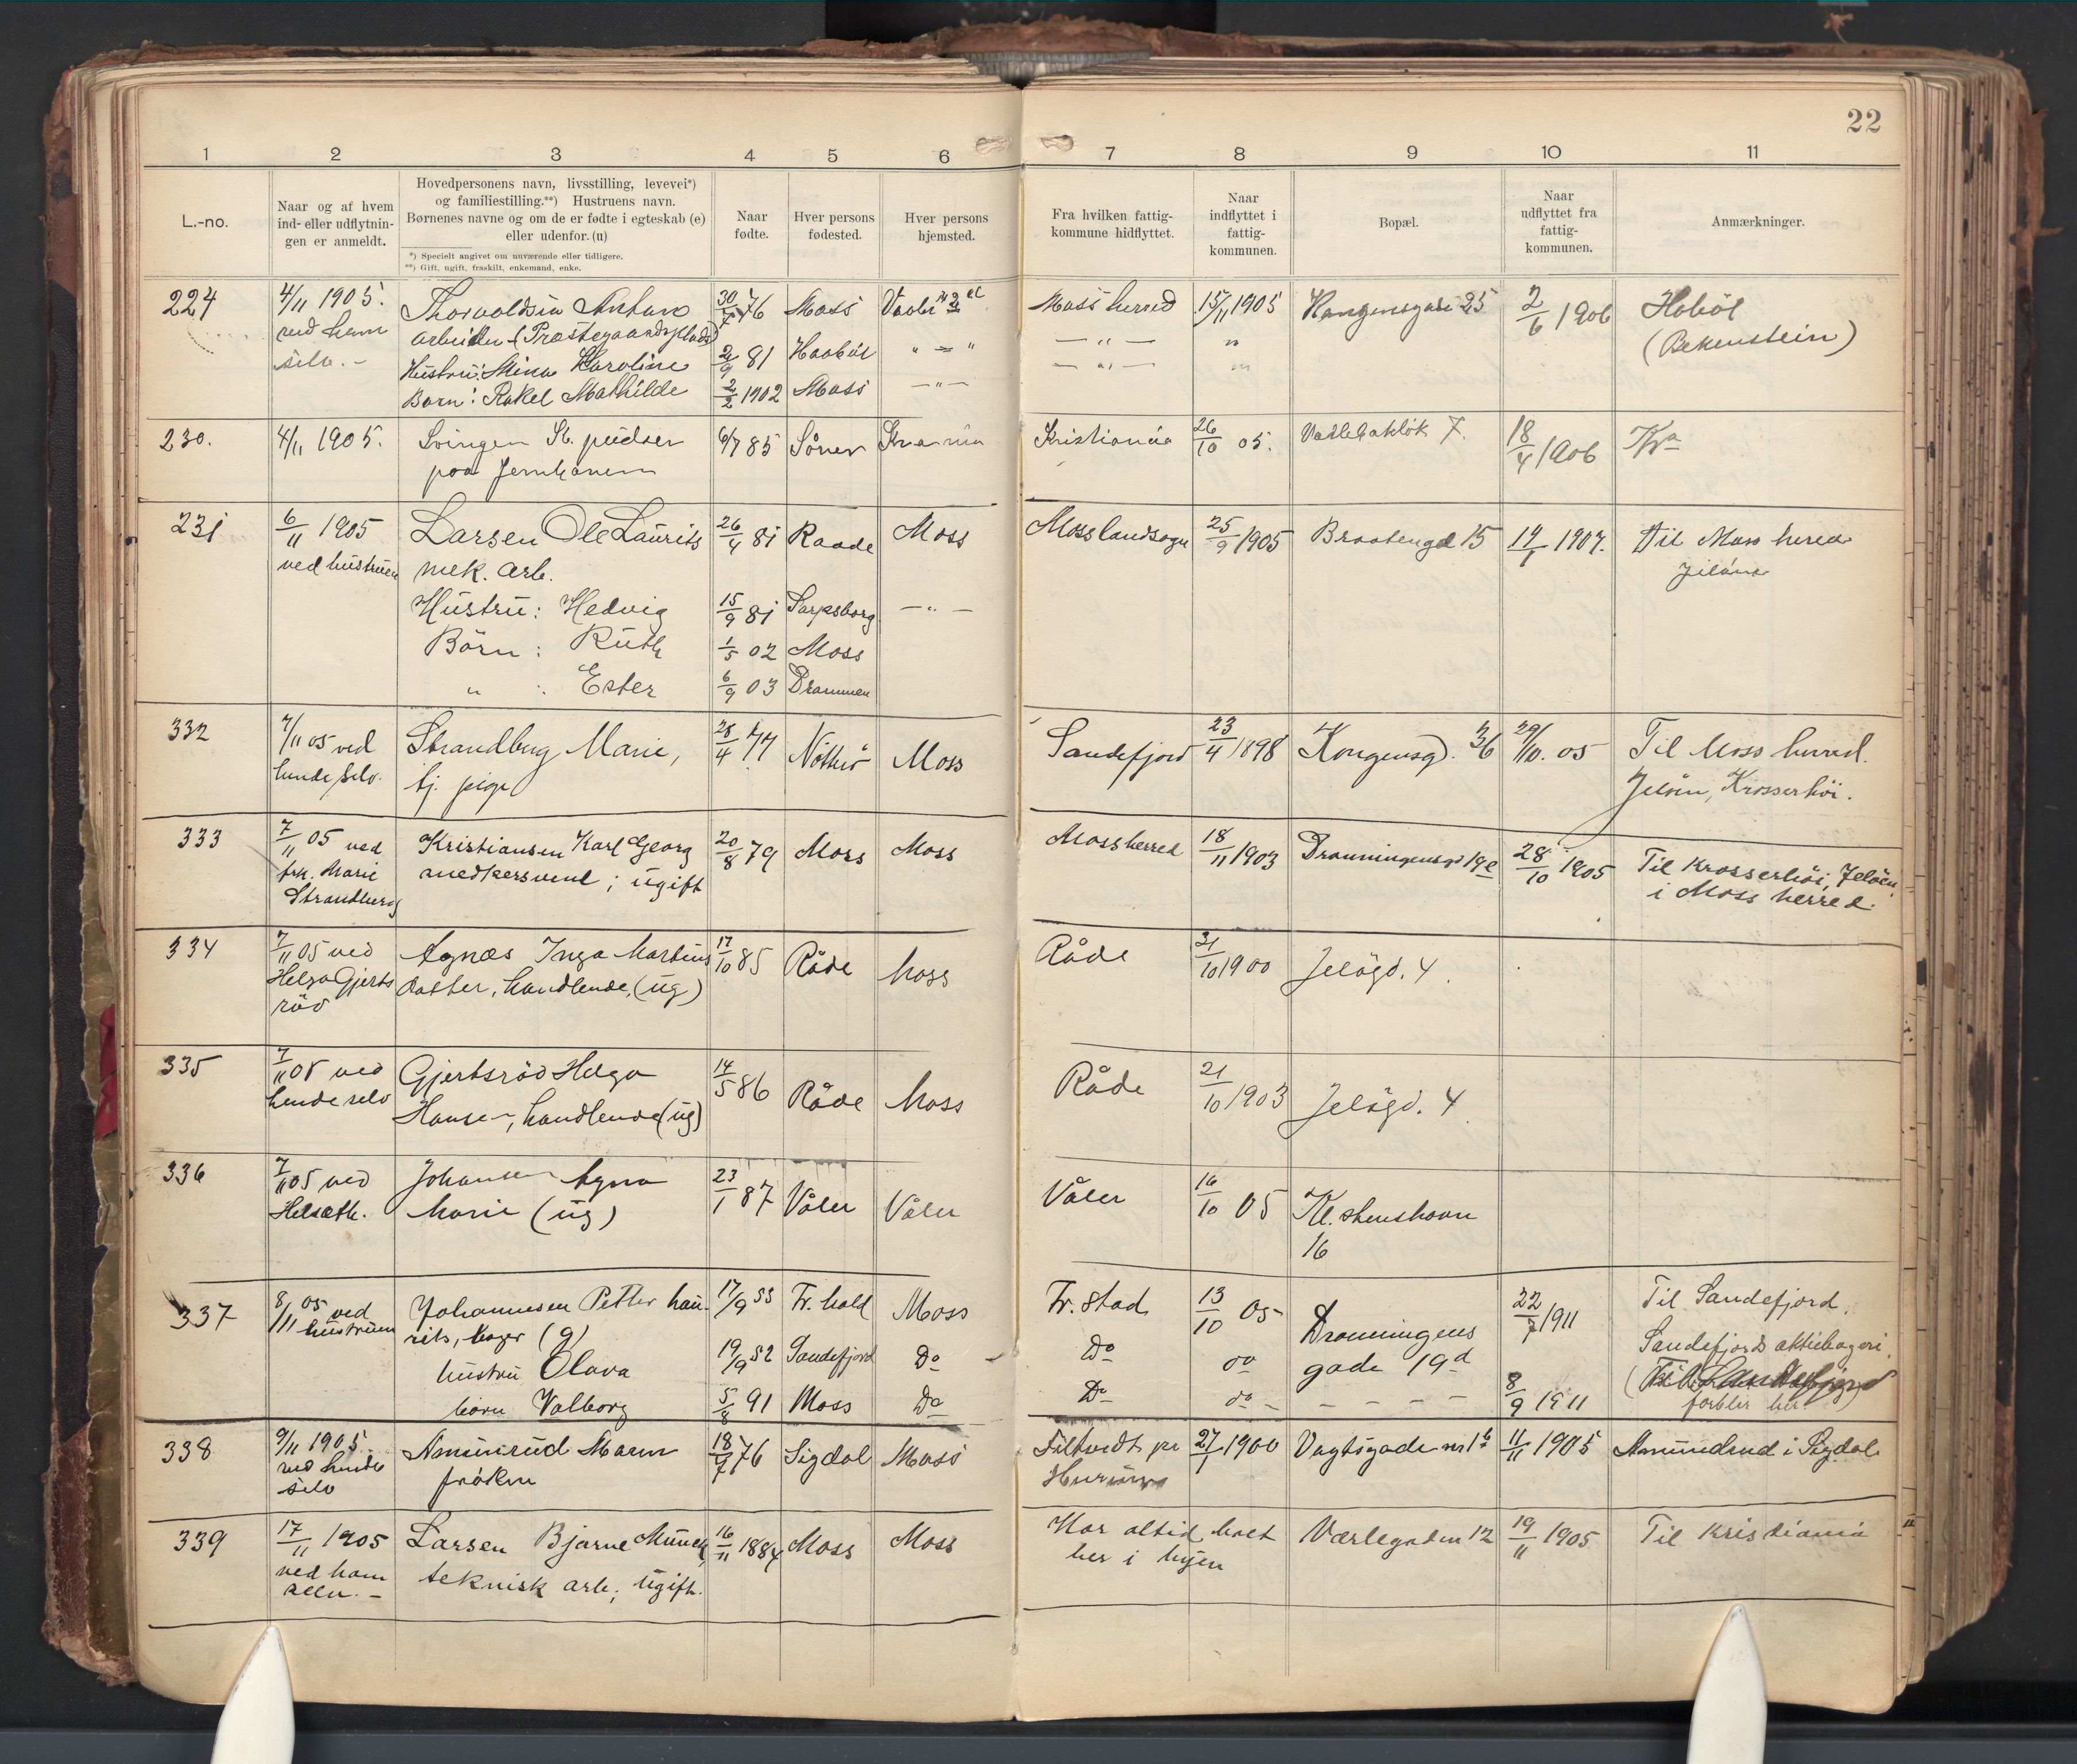 22
1 2 3 4 5 6 7 8 9 10 11
L.-no.
Naar og af hvem
ind- eller udflytnin-
gen er anmeldt.
Hovedpersonens navn, livsstilling, levevei*)
og familiestilling.**) Hustruens navn.
Børnenes navne og om de er fødte i egteskab (e)
eller udenfor. (u)
*) Specielt angivet om nuværende eller tidligere.
**) Gift, ugift, fraskilt, enkemand, enke.
Naar
fødte.
Hver persons
fødested.
Hver persons
hjemsted.
Fra hvilken fattig-
kommune hidflyttet.
Naar
indflyttet i
fattig-
kommunen.
Bopæl.
Naar
udflyttet fra
fattig-
kommunen.
Anmærkninger.
224 4/11 1905. Thorvaldsen Anton 30/7 76 Moss Moss herred 15/11 1905 Kongensgade 25 2/6 1906 Hobøl
ved ham arbeider (Præstegaardsplads) — " — " (Bekenstein)
selv. — Hustru: Mina Karoline 2/9 81 Haabøl " — " — " — "
Barn: Rakel Mathilde 2/2 1902 Moss — " —
230. 4/11 1905. Svingen St. pudser 6/7 85 Sóner Kra-nia Kristiania 26/10 05. 7. 18/4 1906 Kra
paa Jernbanen
231 6/11 1905 Larsen Ole Laurits 26/4 81 Raade Moss Moss landsogn 25/9 1905 Braatengd 15 1907. Til Moss herred
ved hustruen mek. arb. Jeløen
Hustru: Hedvig 15/9 81 Sarpsborg — " —
Börn: Ruth 1/5 02 Moss
" : Ester 6/9 03 Drammen
332 7/11 05 ved Strandberg Marie, 28/4 77 Nötterö Moss Sandefjord 23/4 1898 Kongensg. 36 29/10. 05 Til Moss herred.
hende selv. tj. pige Jeløen, Krosserhöi.
333 7/11 05 ved Kristiansen Karl Georg 20/8 79 Moss Moss Moss herred 18/11 1903 Dronningensgd 19e 28/10 1905 Til Krosserhöi, Jelöen
frk. Marie snedkersvend; ugift i Moss herred.
Strandberg
334 7/11 05 ved Agnæs Inga Martins 17/10 85 Råde Moss Råde 31/10 1900 Jelögd. 4.
Helga Gjerts datter, handlende, (ug)
röd
335 7/11 05 ved Gjertsröd Helga 14/5 86 Råde Moss Råde 21/10 1903 Jelögd. 4
hende selv Hansen, handlende (ug)
336 7/11 05 ved Johansen Agna 23/1 87 Våler Våler Våler 16/10 05 Kl. stenshavn
Helseth. Marie (ug) 16
337 8/11 05 ved Johannesen Petter Lau- 17/9 53 Fr. hald Moss Fr. stad 13/10 05 Dronningens 22/7 1911 Til Sandefjord.
hustruen rits, bager (g) gade 19d Sandefjords aktiebageri.
hustru Olava 19/9 52 Sandefjord Do Do do
barn Valborg 5/8 91 Moss Do Do do — — — — 8/9 1911 forblir her
338 9/11 1905. Amunrud Maren 18/7 76 Sigdal Moss Filtvedt pr 27/1 1900 Vogtsgade nr 16 11/11 1905 Amundrud i Sigdal
ved hende fröken Hurum
selv
339 17/11 1905 Larsen Bjarne Münch, 16/11 1884 Moss Moss Har altid boet Værlegaden 12 19/11 1905 Til Kristiania
ved ham teknisk arb; ugift. her i byen
selv. —